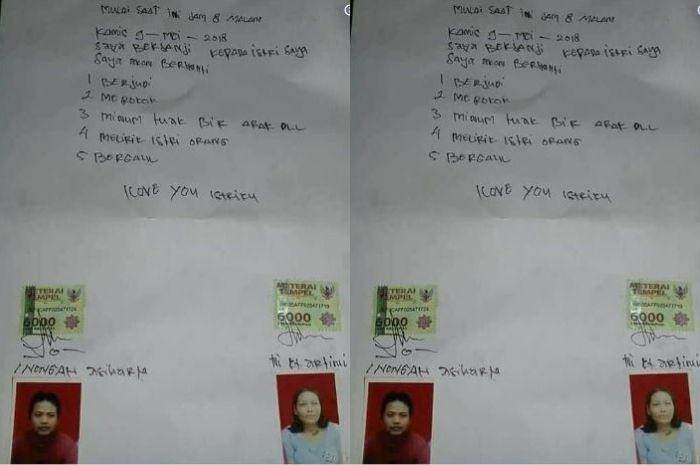 MULAI SAAT INI JAM 8 MALAM
KAMIS 9 - MEI - 2018
SAYA BERJANJI KEPADA ISTRI SAYA
SAYA AKAN BERHENTI
1 BERJUDI
2 MEROKOK
3 MINUM TUAK BIR ARAK DLL
4 MELIRIK ISTRI ORANG
5 BERGAUL
I LOVE YOU ISTRIKU
METERAI TEMPEL
6000
METERAI TEMPEL
6000
MULAI SAAT INI JAM 8 MALAM
KAMIS 9 - MEI - 2018
SAYA BERJANJI KEPADA ISTRI SAYA
SAYA AKAN BERHENTI
1 BERJUDI
2 MEROKOK
3 MINUM TUAK BIR ARAK DLL
4 MELIRIK ISTRI ORANG
5 BERGAUL
I LOVE YOU ISTRIKU
METERAI TEMPEL
6000
METERAI TEMPEL
6000